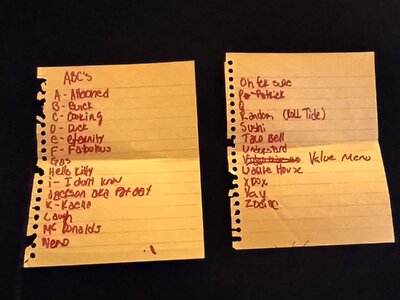 ABC's
A - Attoned
B - Buck
C - Cooking
D - Duck
E - eternity
F - Fabulous
Gas
Hello Kitty
I - I don't know
Jackson AKA Pot Pot
K - Kacen
Laugh
McDonalds
Nemo
Oh fer sure
Pa-Patrick
Q
Random (Roll Tide)
Sushi
Taco Bell
Understand
Value Menu
Waffle House
Xbox
Yay
Zodiac